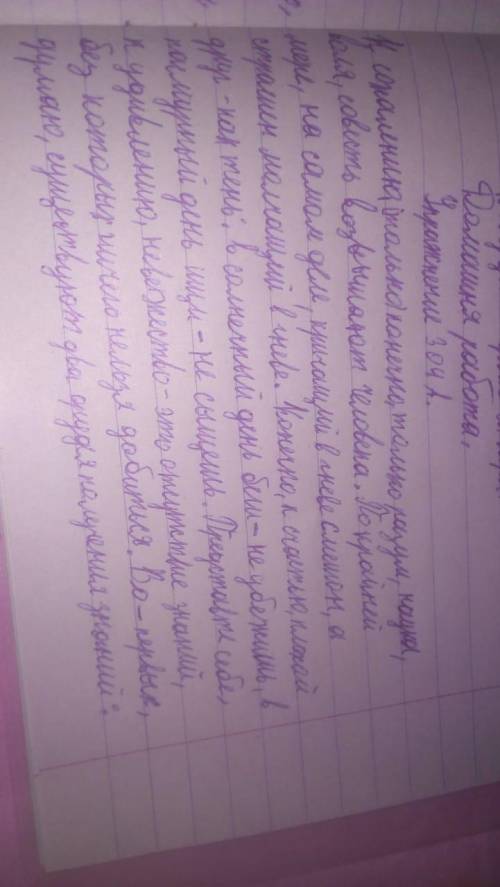 Домашня работа.
Упражнение 304.
К сожалению, только конечно, только разум, наука,
воля, совесть возвышают человека. По крайней
мере, на самом деле, кричащий в гневе смешон, а
страшен молчащий в гневе. Конечно, к счастью, плохой
друг - как тень: в солнечный день беги - не убежишь, в
пасмурный день ищи - не сыщешь. Представьте себе,
к удивлению, невежество - это отсутствие знаний,
без которых ничего нельзя добиться. Во-первых,
думаю, существуют два орудия получения знаний: